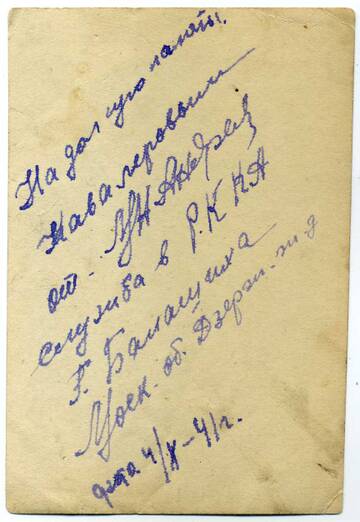 На долгую память.
Кавалеровым
от Андрея
служба в Р.К К А
г. Балашиха
Моск. об. Дзерж.
дата 4/X-41г.